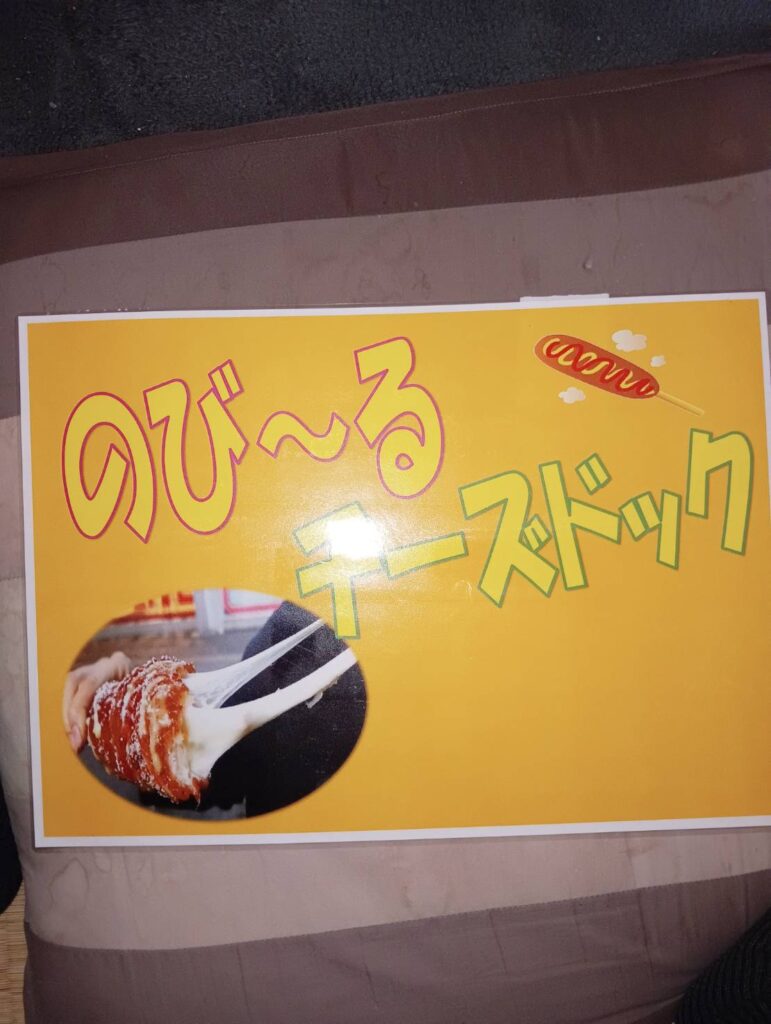 のび～る
チーズドック